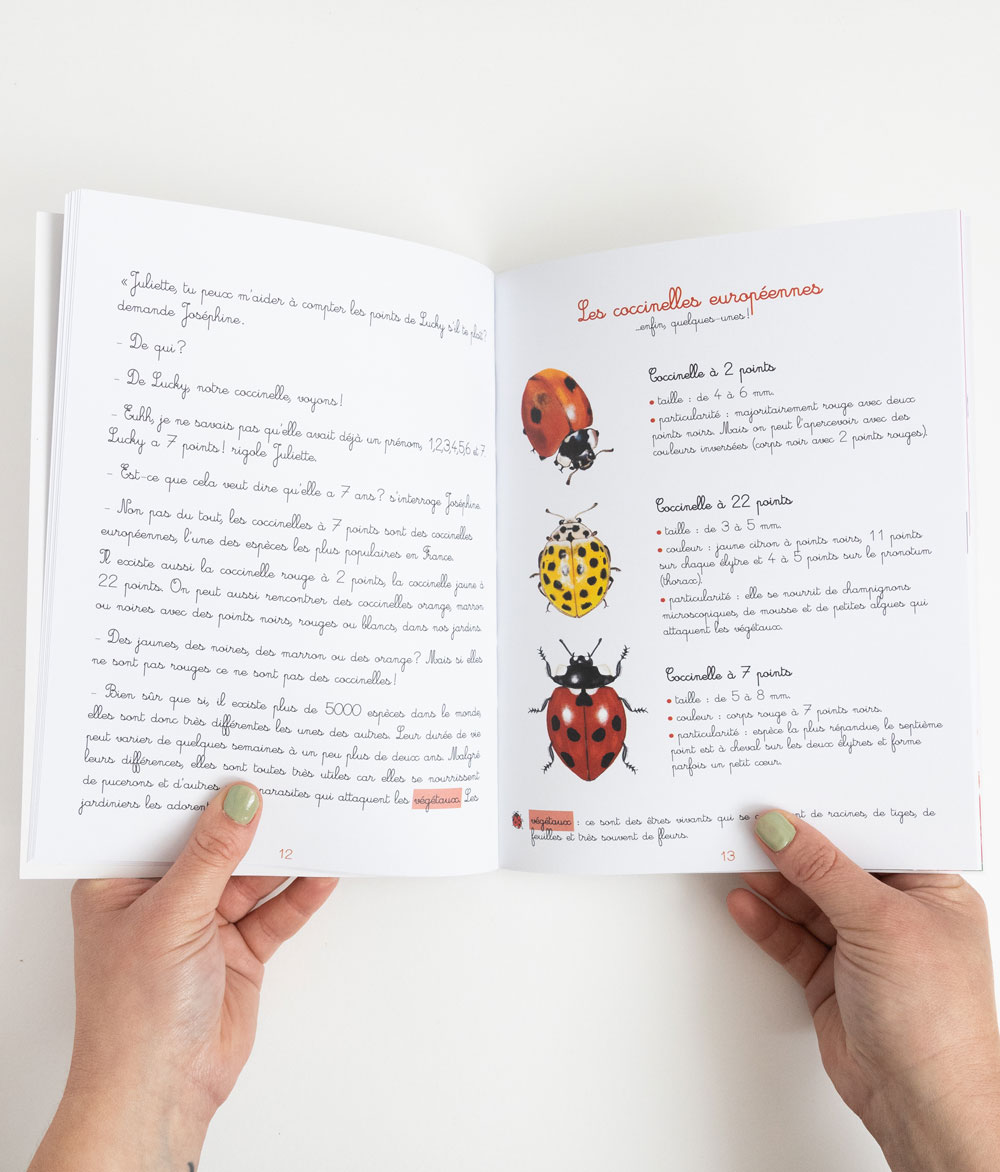 « Juliette, tu peux m'aider à compter les points de Lucky s'il te plaît ?
demande Joséphine.
– De qui ?
– De Lucky, notre coccinelle, voyons !
– Euhh, je ne savais pas qu'elle avait déjà un prénom, 1,2,3,4,5,6 et 7.
Lucky a 7 points ! rigole Juliette.
– Est-ce que cela veut dire qu'elle a 7 ans ? s'interroge Joséphine.
– Non pas du tout, les coccinelles à 7 points sont des coccinelles
européennes, l'une des espèces les plus populaires en France.
Il existe aussi la coccinelle rouge à 2 points, la coccinelle jaune à
22 points. On peut aussi rencontrer des coccinelles orange, marron
ou noires avec des points noirs, rouges ou blancs, dans nos jardins.
– Des jaunes, des noires, des marron ou des orange ? Mais si elles
ne sont pas rouges ce ne sont pas des coccinelles !
– Bien sûr que si, il existe plus de 5000 espèces dans le monde,
elles sont donc très différentes les unes des autres. Leur durée de vie
peut varier de quelques semaines à un peu plus de deux ans. Malgré
leurs différences, elles sont toutes très utiles car elles se nourrissent
de pucerons et d'autres parasites qui attaquent les végétaux. Les
jardiniers les adorent
12
Les coccinelles européennes
...enfin, quelques-unes !
Coccinelle à 2 points
• taille : de 4 à 6 mm.
• particularité : majoritairement rouge avec deux
points noirs. Mais on peut l'apercevoir avec des
couleurs inversées (corps noir avec 2 points rouges).
Coccinelle à 22 points
• taille : de 3 à 5 mm.
• couleur : jaune citron à points noirs, 11 points
sur chaque élytre et 4 à 5 points sur le pronotum
(thorax).
• particularité : elle se nourrit de champignons
microscopiques, de mousse et de petites algues qui
attaquent les végétaux.
Coccinelle à 7 points
• taille : de 5 à 8 mm.
• couleur : corps rouge à 7 points noirs.
• particularité : espèce la plus répandue, le septième
point est à cheval sur les deux élytres et forme
parfois un petit cœur.
végétaux : ce sont des êtres vivants qui se de racines, de tiges, de
feuilles et très souvent de fleurs.
13